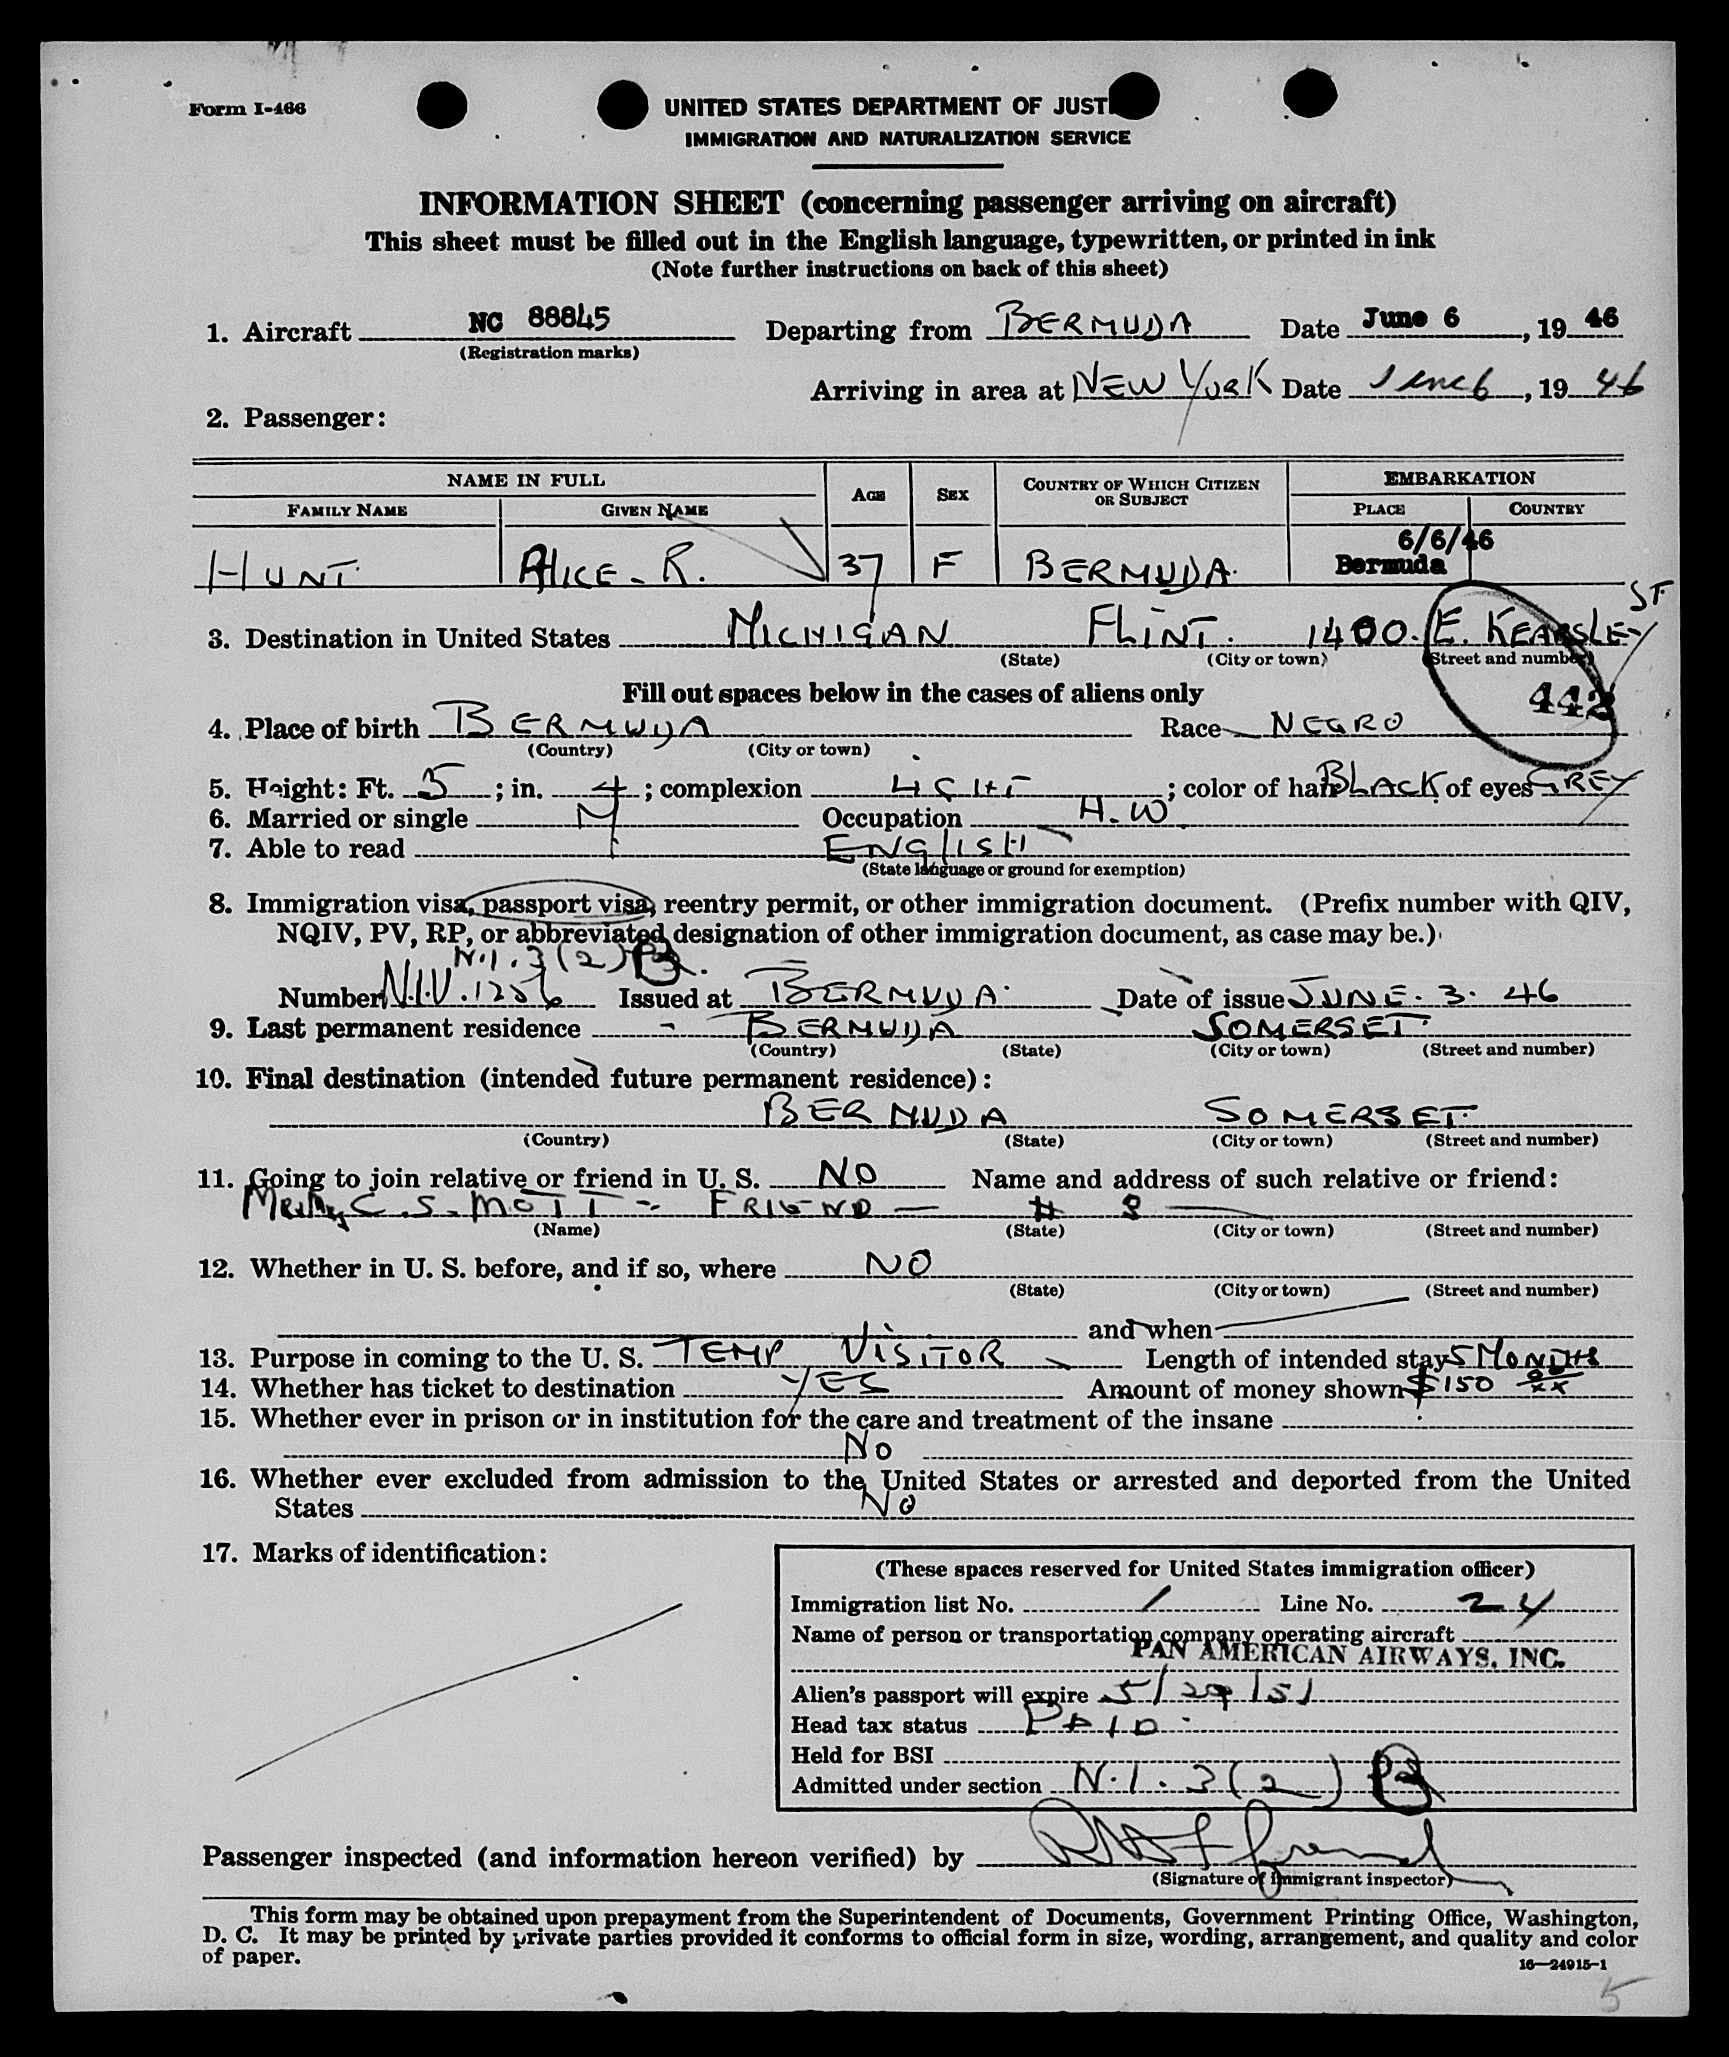 Form I-466
UNITED STATES DEPARTMENT OF JUST
IMMIGRATION AND NATURALIZATION SERVICE
INFORMATION SHEET (concerning passenger arriving on aircraft)
This sheet must be filled out in the English language, typewritten, or printed in ink
(Note further instructions on back of this sheet)
1. Aircraft NC 88845 Departing from BERMUDA Date June 6, 19 46
(Registration marks)
Arriving in area at NEW YORK Date June 6, 19 46
2. Passenger:
NAME IN FULL AGE SEX COUNTRY OF WHICH CITIZEN OR SUBJECT EMBARKATION
FAMILY NAME GIVEN NAME PLACE COUNTRY
6/6/46
HUNT ALICE - R. 37 F BERMUDA Bermuda
ST.
3. Destination in United States MICHIGAN FLINT. 1400. E. KEARSLEY
(State) (City or town) (Street and number)
Fill out spaces below in the cases of aliens only
442
4. Place of birth BERMUDA Race NEGRO
(Country) (City or town)
5. Height: Ft. 5; in. 4; complexion LIGHT; color of hair BLACK of eyes GREY
6. Married or single M Occupation H.W.
7. Able to read ENGLISH
(State language or ground for exemption)
8. Immigration visa, passport visa, reentry permit, or other immigration document. (Prefix number with QIV,
NQIV, PV, RP, or abbreviated designation of other immigration document, as case may be.)
N.I. 3(2) P2.
Number N.I.V. 1256 Issued at BERMUDA Date of issue JUNE. 3. 46
9. Last permanent residence - BERMUDA SOMERSET.
(Country) (State) (City or town) (Street and number)
10. Final destination (intended future permanent residence):
BERMUDA SOMERSET.
(Country) (State) (City or town) (Street and number)
11. Going to join relative or friend in U. S. NO Name and address of such relative or friend:
C. S. MOTT - FRIEND — # 3 —
(Name) (State) (City or town) (Street and number)
12. Whether in U. S. before, and if so, where NO
(State) (City or town) (Street and number)
and when
13. Purpose in coming to the U. S. TEMP VISITOR Length of intended stay 5 MONTHS
14. Whether has ticket to destination YES Amount of money shown $150 00/xx
15. Whether ever in prison or in institution for the care and treatment of the insane
No
16. Whether ever excluded from admission to the United States or arrested and deported from the United
States No
17. Marks of identification:
(These spaces reserved for United States immigration officer)
Immigration list No. 1 Line No. 24
Name of person or transportation company operating aircraft
PAN AMERICAN AIRWAYS, INC.
Alien's passport will expire 5/29/51
Head tax status PAID.
Held for BSI
Admitted under section N.I. 3(2) P2
Passenger inspected (and information hereon verified) by
(Signature of immigrant inspector)
This form may be obtained upon prepayment from the Superintendent of Documents, Government Printing Office, Washington,
D. C. It may be printed by private parties provided it conforms to official form in size, wording, arrangement, and quality and color
of paper.
16—24915-1
5